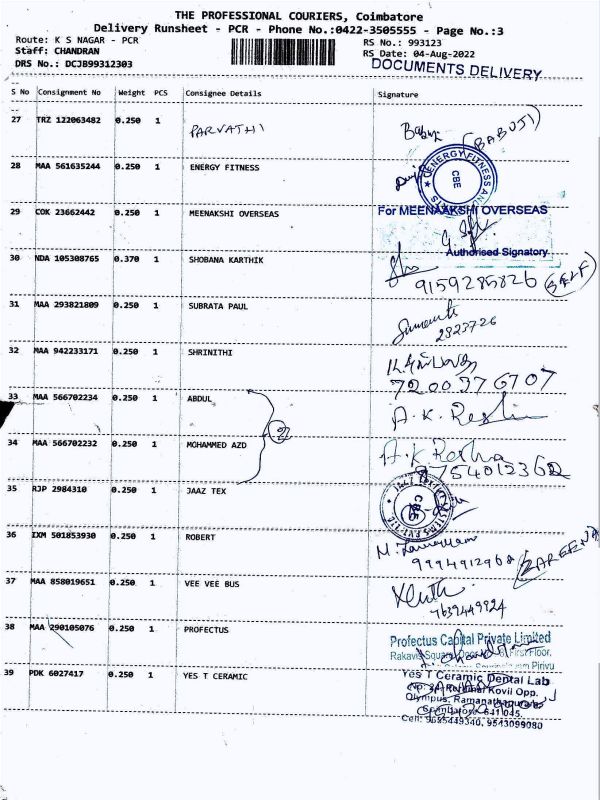 THE PROFESSIONAL COURIERS, Coimbatore
Delivery Runsheet - PCR - Phone No.:0422-3505555 - Page No.:3
Route: K S NAGAR - PCR
RS No.: 993123
Staff: CHANDRAN
RS Date: 04-Aug-2022
DRS No.: DCJB99312303
DOCUMENTS DELIVERY
S No Consignment No Weight PCS Consignee Details Signature
27 TRZ 122063482 0.250 1 PARVATHI
(BABUJI)
28 MAA 561635244 0.250 1 ENERGY FITNESS
ENERGY FITNESS AND
CBE
29 COK 23662442 0.250 1 MEENAKSHI OVERSEAS
For MEENAAKSHI OVERSEAS
Authorised Signatory
30 NDA 105308765 0.370 1 SHOBANA KARTHIK
9159285826 (SELF)
31 MAA 293821809 0.250 1 SUBRATA PAUL
2323726
32 MAA 942233171 0.250 1 SHRINITHI
7200376707
33 MAA 566702234 0.250 1 ABDUL
2
34 MAA 566702232 0.250 1 MOHAMMED AZD
8754012362
35 RJP 2984310 0.250 1 JAAZ TEX
CBE
36 IXM 501853930 0.250 1 ROBERT
9994912968
37 MAA 858019651 0.250 1 VEE VEE BUS
9639449924
38 MAA 290105076 0.250 1 PROFECTUS
Profectus Capital Private Limited
First Floor,
Pirivu
39 PDK 6027417 0.250 1 YES T CERAMIC
Yes T Ceramic Dental Lab
Kovil Opp.
Olympus, Ramanathapuram
Coimbatore-641 045.
Cell: 9655449340, 9543099080